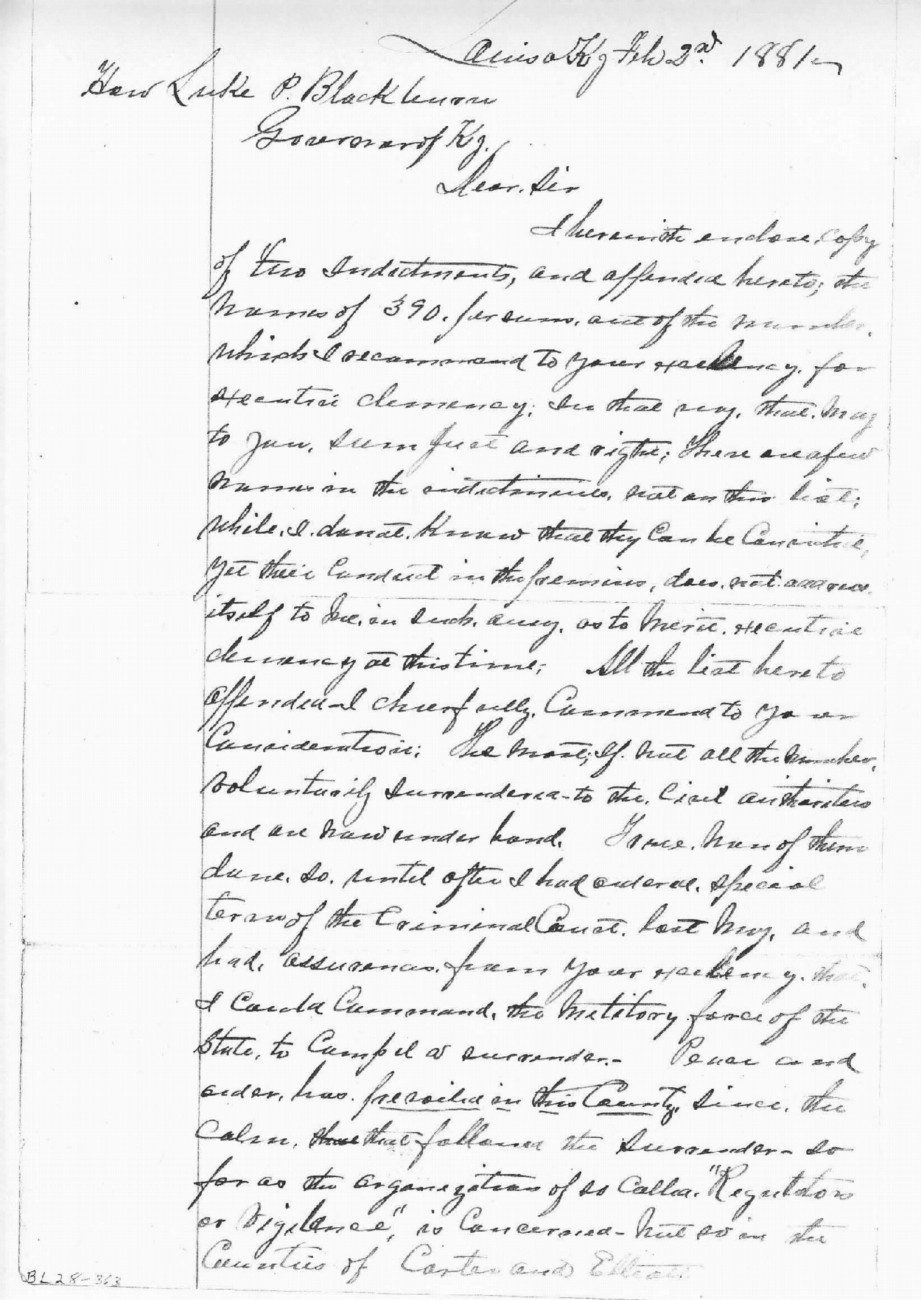 Louisa Ky Feb 2nd 1881
Hon Luke P. Blackburn
Governor of Ky.
Dear Sir
I herewith enclose copy
of two Indictments, and appended hereto, the
Names of 390. persons. out of the number,
which I recommend to your excellency. for
executive clemency; in that way, that may
to you, seem just and right; There are a few
Names in the indictments, not on this list;
while, I do not Know that they Can be Convicted,
yet their Conduct in the premises, does not approve
itself to me, in such away, as to merit executive
clemency at this time; All the list hereto
appended I cheerfully. Commend to your
Consideration; The most, if not all the number,
voluntarily surrendered to the Civil authorities
and are now under bond. True. Non of them
done. so. until after I had ordered special
term of the Criminal Court. last May, and
had. assurances, from your excellency. that,
I could Command, the Militory force of the
State, to Compel a surrender.- Peace and
order, has prevailed in this County, since, the
Calm, that followed the surrender - so
far as the organization of so Called. "Regulators
or Vigilance", is Concerned - Not so in the
Counties of Carter and Elliott
BL28-363